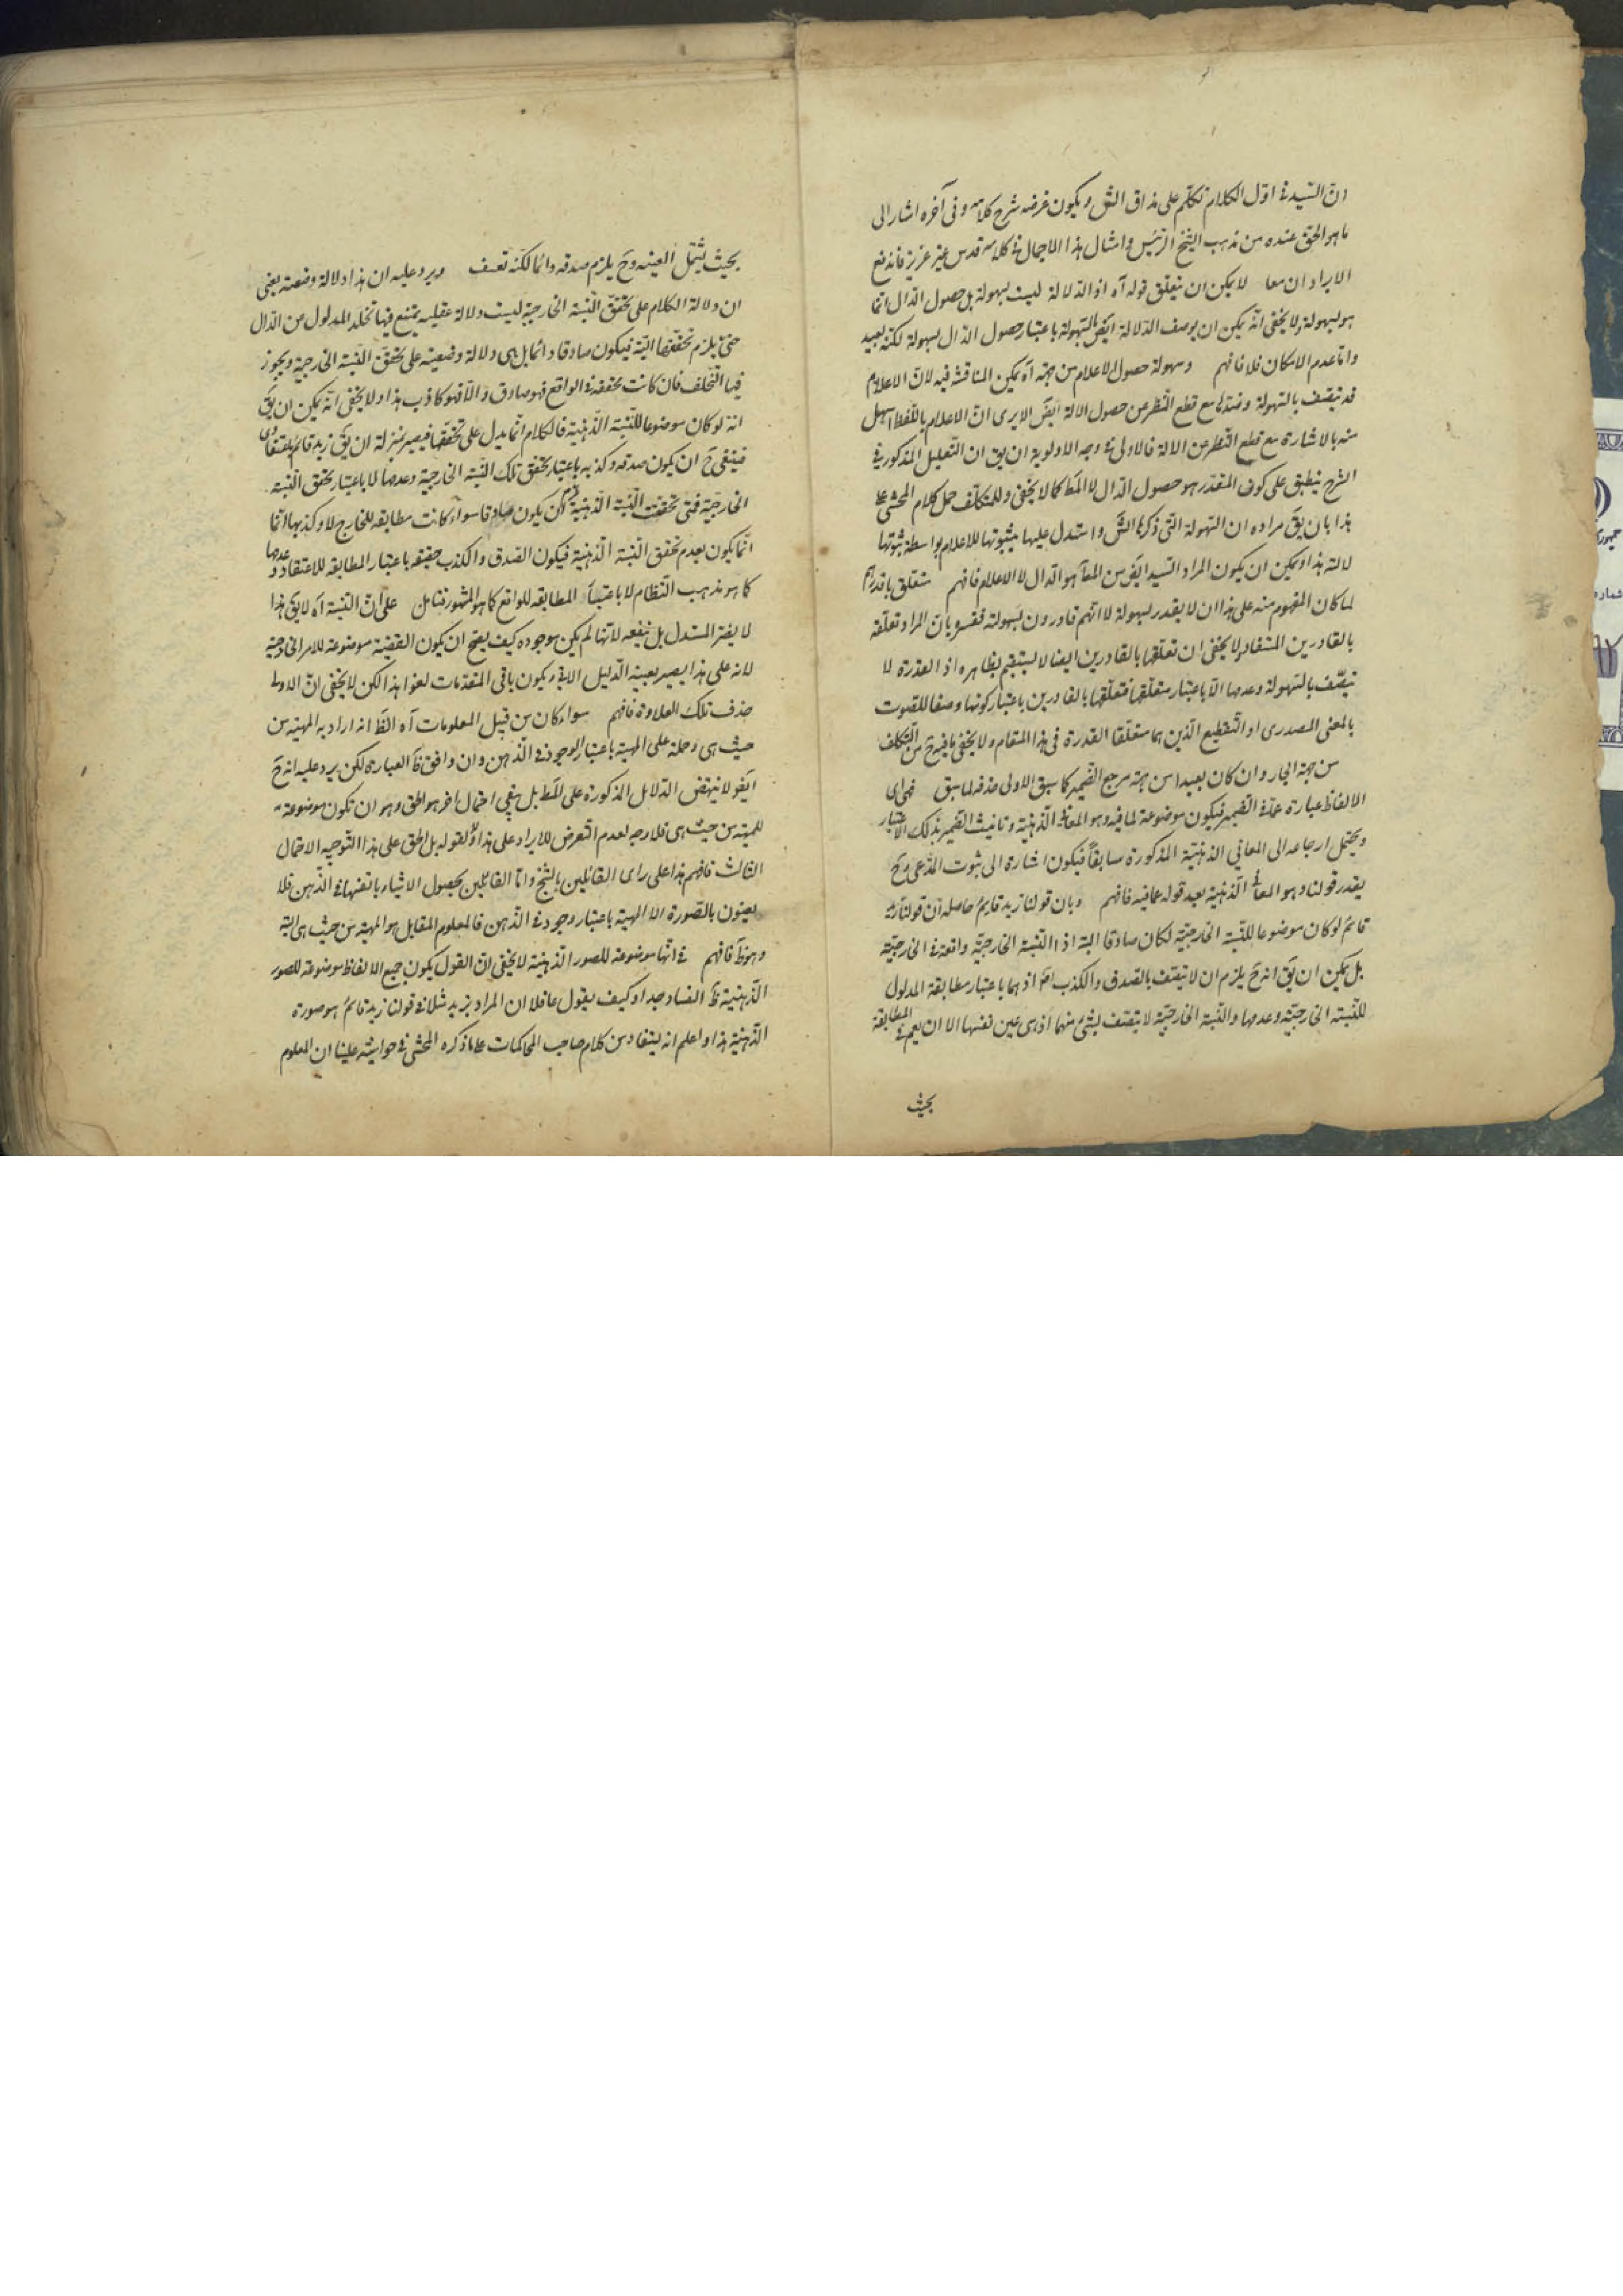 ان السيد فى اول الكلام تكلم على مذاق الش ويكون غرضه شرح كلامه وفى آخره اشار الى
ما هو الحق عنده من مذهب الشيخ الرئيس وامثال هذا الاجمال فى كلامه قدس غير عزيز فاندفع
الايرادان معا لا يمكن ان يتعلق قوله آه اذ الدلالة ليست بسهولة بل حصول الدال انما
هو بسهولة ولا يخفى انه يمكن ان يوصف الدلالة ايض بالسهولة باعتبار حصول الدال بسهولة لكنه بعيد
واما عدم الامكان فلا فافهم وسهولة حصول الاعلام من جهته آه يمكن المناقشة فيه لان الاعلام
قد يتصف بالسهولة وضدها مع قطع النظر عن حصول الالة ايض الا يرى ان الاعلام باللفظ اسهل
منه بالاشارة مع قطع النظر عن الالة فالاولى فى وجه الاولوية ان يق ان التعليل المذكور فى
الشرح ينطبق على كون المقدر هو حصول الدال لا المط كما لا يخفى وللمتكلف حمل كلام المحشى على
هذا بان يق مراده ان السهولة التى ذكرها الش واستدل عليها بثبوتها للاعلام بواسطة ثبوتها
لالته هذا ويمكن ان يكون المراد السيد ايض من المعا هو الدال لا الاعلام فافهم متعلق باقدارهم
لما كان المفهوم منه على هذا ان لا يقدر بسهولة لا انهم قادرون بسهولة ففسر بان المراد تعلقه
بالقادرين المستفاد ولا يخفى ان تعلقها بالقادرين ايضا لا يستقيم بظاهره اذ القدرة لا
يتصف بالسهولة وعدمها الا باعتبار متعلقها فتعلقها بالقادرين باعتبار كونها وصفا للصوت
بالمعنى المصدرى او التقطيع الذين هما متعلقا القدرة فى هذا المقام ولا يخفى ما فيه ح من التكلف
من جهة الجار وان كان بعيدا من جهة مرجع الضمير كما سبق الاولى حذفه لما سبق فهى اى
الالفاظ عبارة عما فى الضمير فيكون موضوعة لما فيه وهو المعانى الذهنية وتانيث الضمير بذلك الاعتبار
ويحتمل ارجاعه الى المعانى الذهنية المذكورة سابقا فيكون اشارة الى ثبوت المدعى وح
يقدر قولنا وهو المعانى الذهنية بعد قوله عما فيه فافهم وبان قولنا زيد قايم حاصله ان قولنا زيد
قائم لو كان موضوعا للنسبة الخارجية لكان صادقا البتة اذ النسبة الخارجية واقعة فى الخارجية
بل يمكن ان يق انه ح يلزم ان لا يتصف بالصدق والكذب اصا اذ هما باعتبار مطابقة المدلول
للنسبة الخارجية وعدمها والنسبة الخارجية لا يتصف بشئ منهما اذ هى عين نفسها الا ان يعمم فى المطابقة
بحيث
بحيث يشمل العينيه وح يلزم صدقه دائما لكنه تعسف ويرد عليه ان هذا دلالة وضعية يعنى
ان دلالة الكلام على تحقق النسبة الخارجية ليست دلالة عقليه يمتنع فيها تخلف المدلول عن الدال
حتى يلزم تحققها البتة فيكون صادقا دائما بل هى دلالة وضعيه على تحقق النسبة الخارجية ويجوز
فيها التخلف فان كانت محققة فى الواقع فهو صادق والا فهو كاذب هذا ولا يخفى انه يمكن ان يق
انه لو كان موضوعا للنسبة الذهنية فالكلام انما يدل على تحققها فيصير بمنزلة ان يق زيد قائم
فينبغى ح ان يكون صدقه وكذبه باعتبار تحقق تلك النسبة الخارجية وعدمها لا باعتبار تحقق النسبة
الخارجية فمتى تحققت النسبة الذهنية لزم ان يكون صادقا سواء كانت مطابقه للخارج ام لا وكذبها انما
انما يكون بعدم تحقق النسبة الذهنية فيكون الصدق والكذب حقيقه باعتبار المطابقه للاعتقاد وعدمها
كما هو مذهب النظام لا باعتبار المطابقه للواقع كما هو المشهور فتامل على ان النسبة آه لا يق هذا
لا يضر المستدل بل ينفعه لانها لم يكن موجوده كيف يصح ان يكون القضية موضوعة للامر الخارجية
لانه على هذا يصير بعينه الدليل الاتى ويكون باقى المقدمات لغوا هذا لكن لا يخفى ان الاولى
حذف تلك العلاوة فافهم سواء كان من قبيل المعلومات آه الظ انه اراد به المهية من
حيث هى وحمله على المهية باعتبار الوجود فى الذهن وان وافق ظ العبارة لكن يرد عليه انه ح
ايض لا ينهض الدلايل المذكورة على المط بل بقى احتمال اخر هو الحق وهو ان تكون موضوعة
للمهية من حيث هى فلا وجه لعدم التعرض للايراد على هذا ولقوله بل الحق على هذا التوجيه الاحتمال
الثالث فافهم هذا على راى القائلين بالشبح واما القايلين بحصول الاشياء بانفسها فى الذهن فلا
يعنون بالصورة الا المهية باعتبار وجودها فى الذهن فالمعلوم المقابل هو المهية من حيث هى البتة
وهو ظ فافهم فى انها موضوعة للصور الذهنية لا يخفى ان القول بكون جميع الالفاظ موضوعة للصور
الذهنية ظ الفساد جدا وكيف يقول عاقل ان المراد بزيد مثلا فى قولنا زيد قائم هو صورة
الذهنية هذا واعلم انه يستفاد من كلام صاحب المحاكمات على ما ذكره المحشى فى حواشيه علينا ان المعلوم